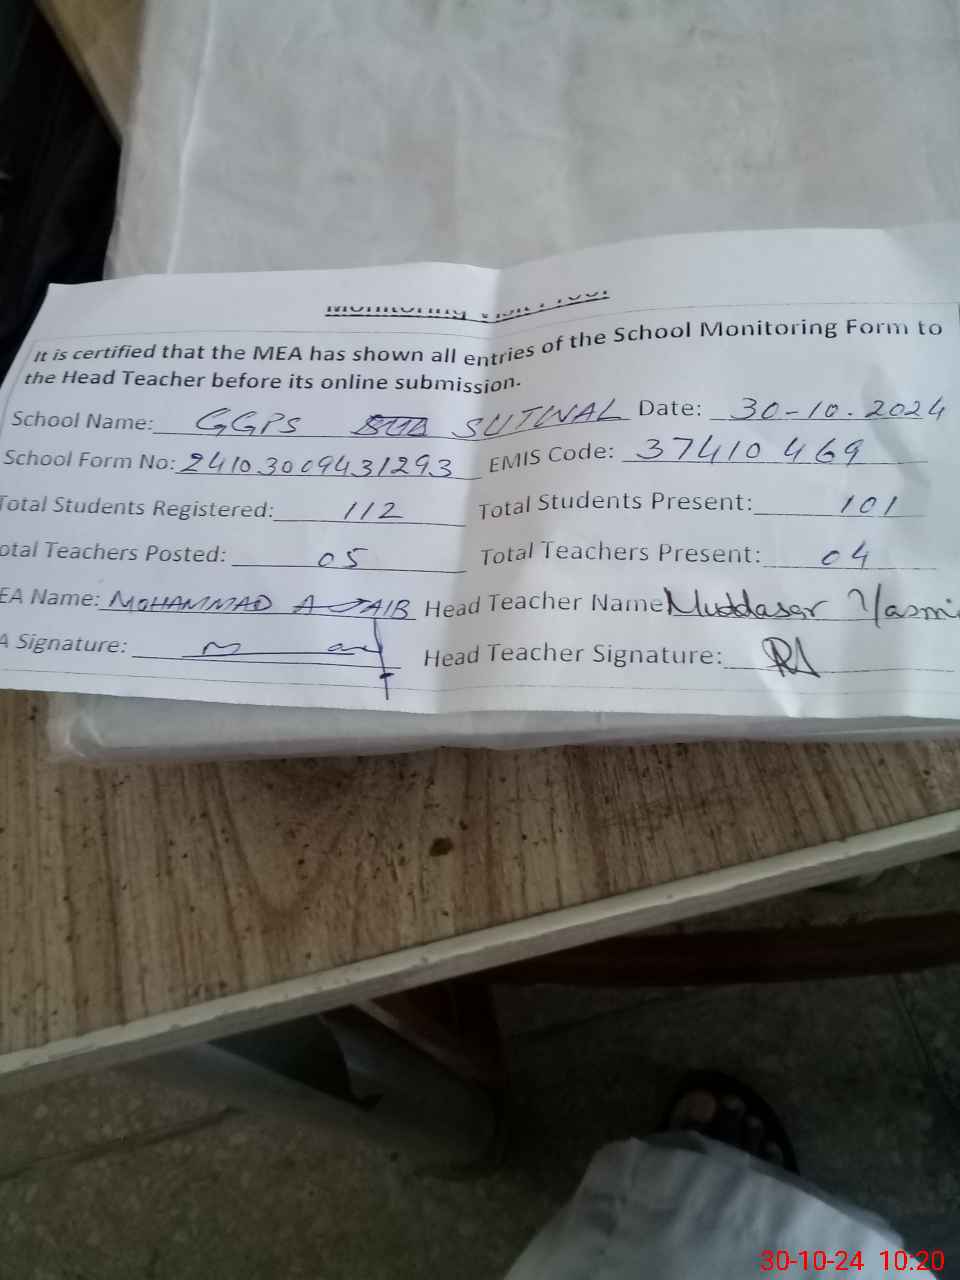 Monitoring Visit Proof
It is certified that the MEA has shown all entries of the School Monitoring Form to
the Head Teacher before its online submission.
School Name: GGPS SUTWAL Date: 30-10.2024
School Form No: 24103009431293 EMIS Code: 37410469
Total Students Registered: 112 Total Students Present: 101
otal Teachers Posted: 05 Total Teachers Present: 04
EA Name: MOHAMMAD Head Teacher Name Muddasar Yasmi
A Signature: Head Teacher Signature:
30-10-24 10:20